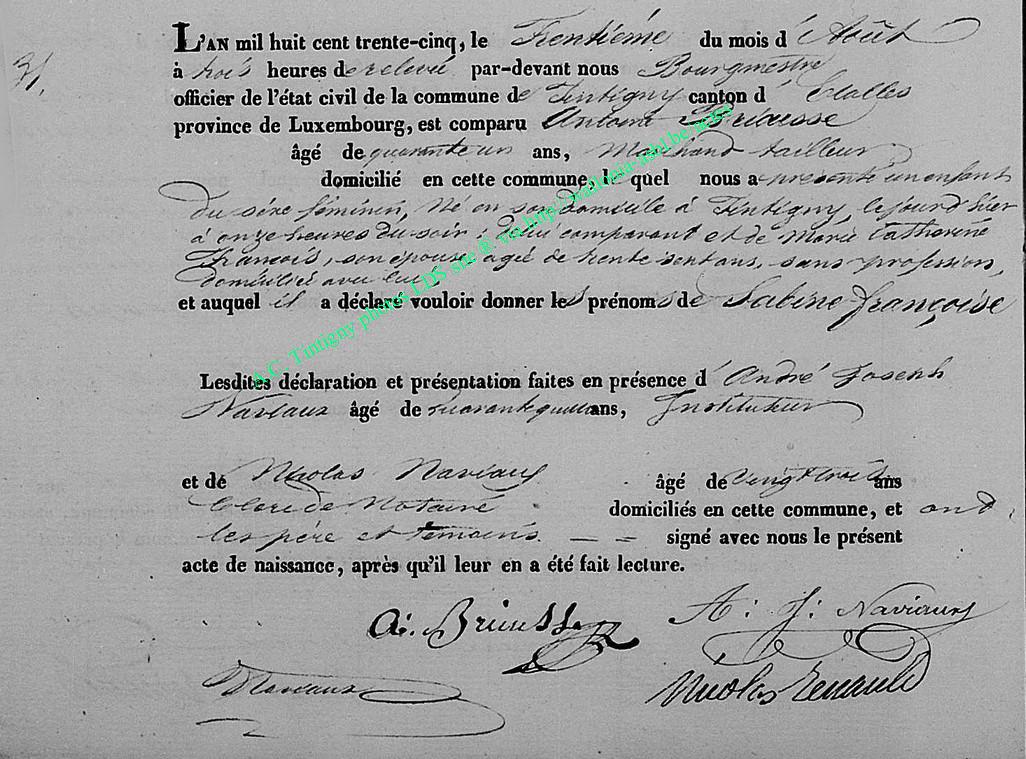 31.
L'AN mil huit cent trente-cinq, le Trentième du mois d'Août
à trois heures de relevée par-devant nous Bourgmestre
officier de l'état civil de la commune de Tintigny canton d'Etalles
province de Luxembourg, est comparu Antoine
âgé de quarante un ans, Marchand tailleur
domicilié en cette commune, le quel nous a présenté un enfant
du séxe féminin, Né en son domicile à Tintigny, le jour d'hier
à onze heures du soir, de lui comparant et de Marie Catherine
François, son épouse, agée de trente sept ans, sans profession,
domicilié avec lui
et auquel il a déclaré vouloir donner les prénoms de Sabine françoise
Lesdites déclaration et présentation faites en présence d'André Joseph
Naviaux âgé de ans, Instituteur
et de Nicolas Naviaux âgé de Vingt trois ans
Clerc de Notaire domiciliés en cette commune, et ont
les père et témoins. — — signé avec nous le présent
acte de naissance, après qu'il leur en a été fait lecture.
A: J: Naviaux
A:
Naviaux
Nicolas Renauld
A.C. Tintigny photos LDS site & via http://wallonia-asbl.be/actes